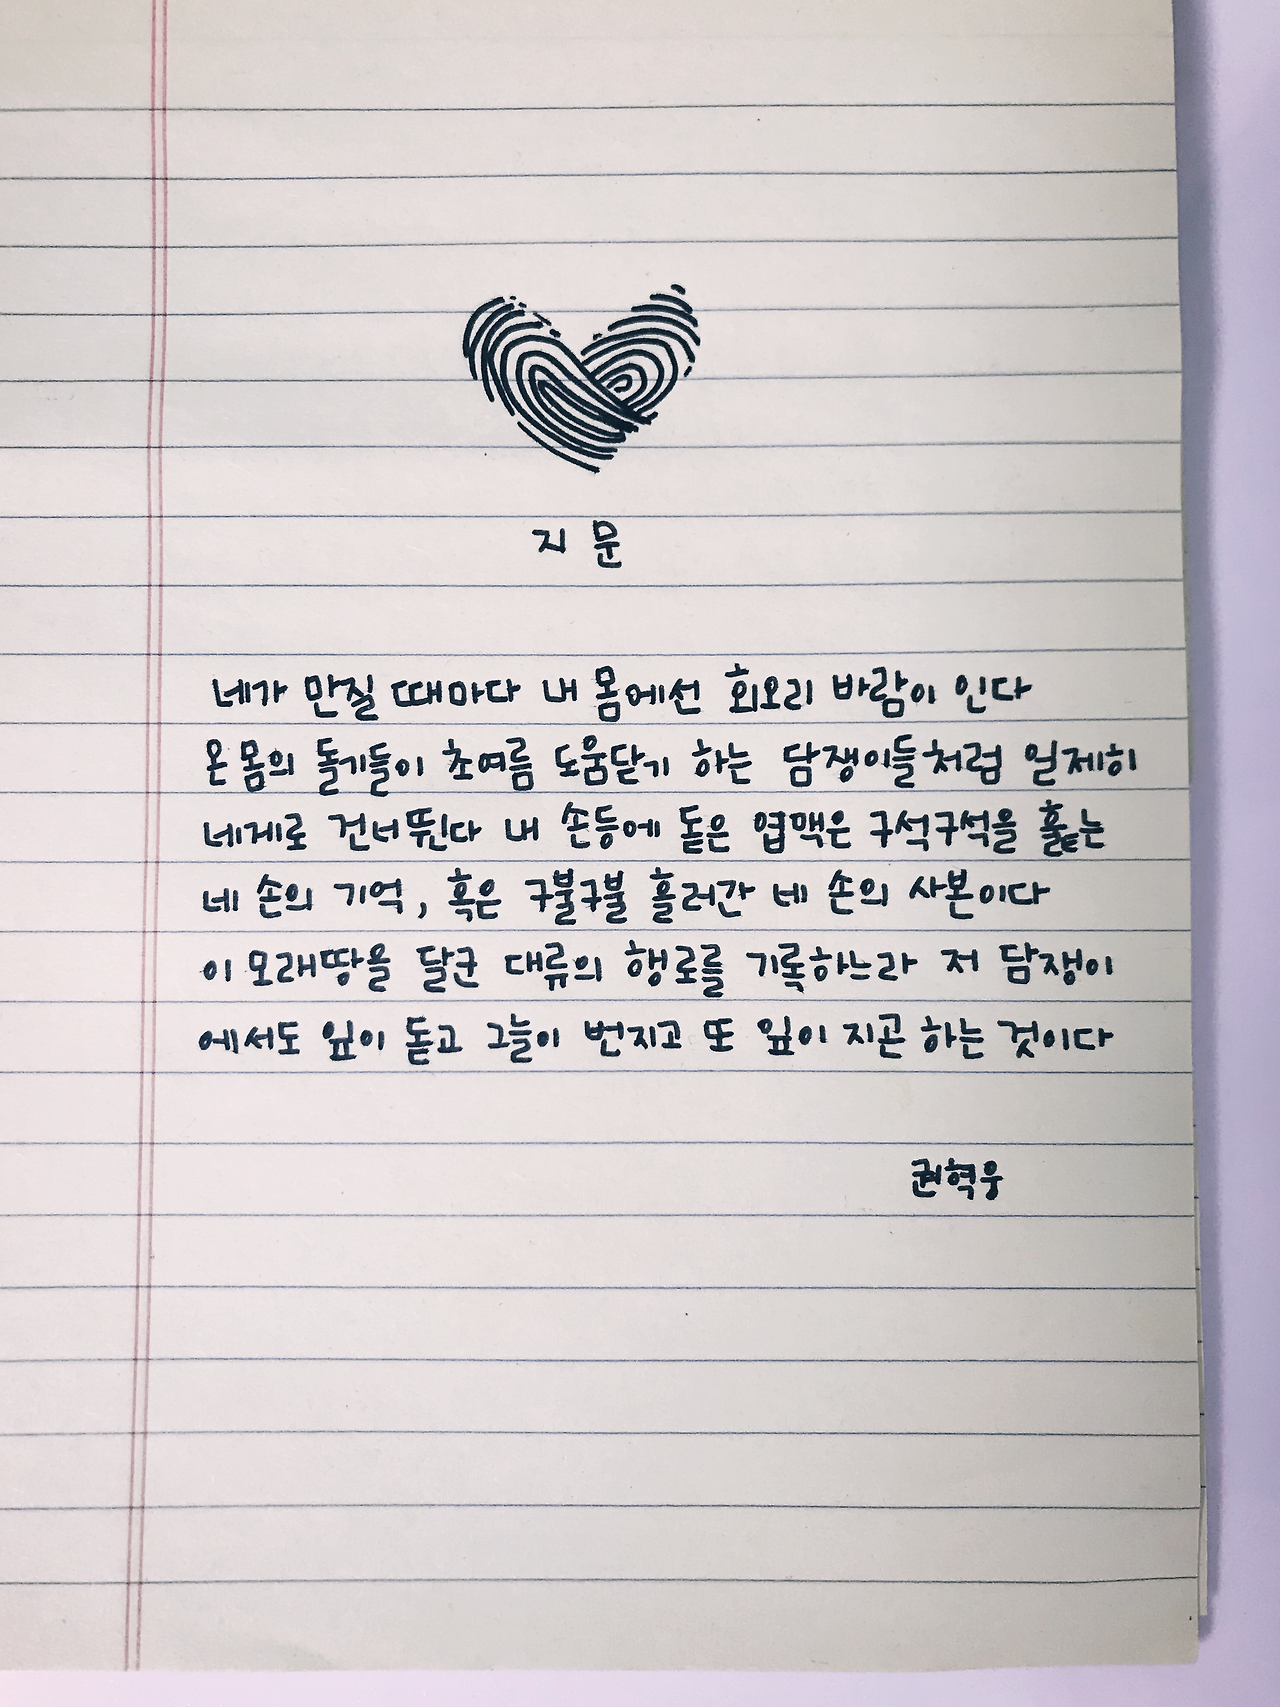 지문
네가 만질 때마다 내 몸에선 회오리 바람이 인다
온 몸의 돌기들이 초여름 도움닫기 하는 담쟁이들처럼 일제히
네게로 건너뛴다 내 손등에 돋은 엽맥은 구석구석을 훑는
네 손의 기억, 혹은 구불구불 흘러간 네 손의 사본이다
이 모래땅을 달군 대류의 행로를 기록하느라 저 담쟁이
에서도 잎이 돋고 그늘이 번지고 또 잎이 지곤 하는 것이다
권혁웅